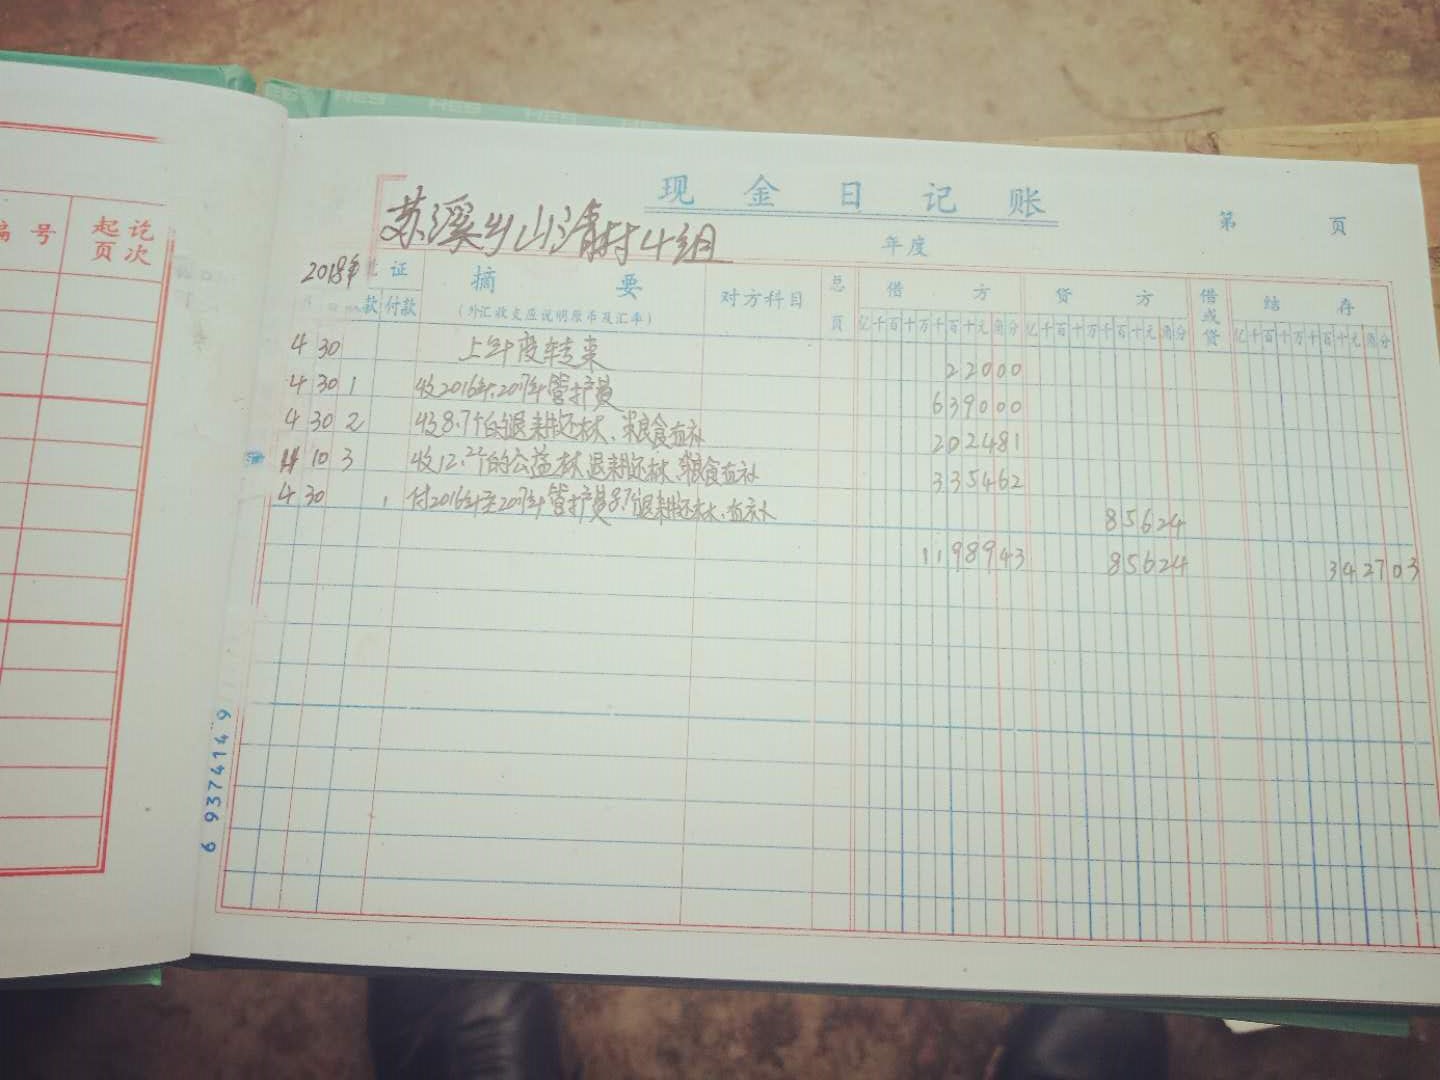 HES HES HES
编号 起讫页次
现金日记账
苏溪乡山清村4组
年度
第 页
2018年 凭证 摘要 对方科目 总页 借方 贷方 借或贷 结存
款 付款 (外汇收支应说明原币及汇率) 亿千百十万千百十元角分 亿千百十万千百十元角分 亿千百十万千百十元角分
4 30 上年度转来 22000
4 30 1 收2016年、2017年管护员 639000
4 30 2 收8.7个的退耕还林、粮食直补 202481
4 10 3 收12.2个的公益林、退耕还林、粮食直补 335462
4 30 1 付2016年至2017年管护员8.7个退耕还林、直补 85624
1198943 85624 342703
6 937414 9